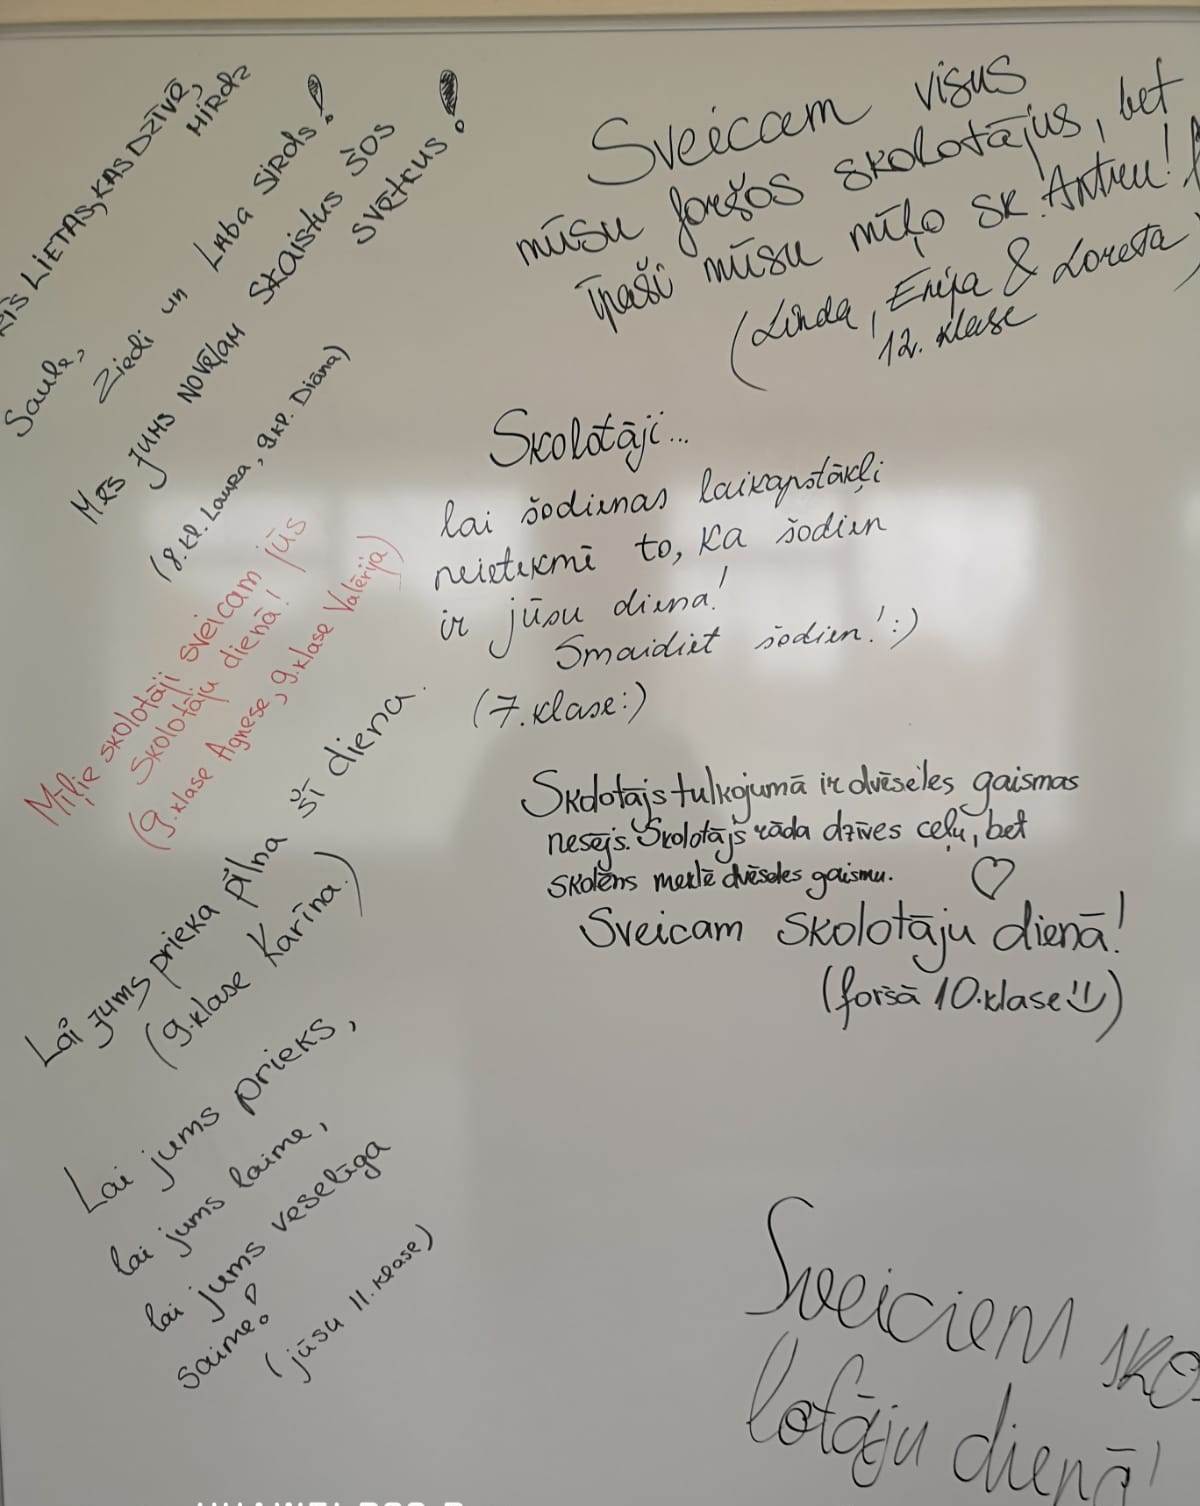 LIETAS, KAS DZĪVĒ,
MIRDZ
Saule,
Ziedi un
LAbA SIRDS!
MēS JUMS NOVēLAM SKAISTUS ŠOS
SVēTKUS!
(8.kl. LAURA, 9.KP. DIāNA)
Mīļie skolotāji sveicam jūs
Skolotāju dienā!
(9.klase Agnese, 9.klase Valērija)
Lai jums prieka pilna šī diena.
(9.klase Karīna.)
Lai jums prieks,
lai jums laime,
lai jums veselīga
saime!
(jūsu 11.klase)
Sveicam visus
mūsu foršos skolotājus, bet
īpaši mūsu mīļo sk. Antru!
(Linda, Enija & Loreta)
12. klase
Skolotāji...
lai šodienas laikapstākļi
neietekmē to, ka šodien
ir jūsu diena!
Smaidiet šodien! :)
(7.klase:)
Skolotājs tulkojumā ir dvēseles gaismas
nesējs. Skolotājs rāda dzīves ceļu, bet
skolēns meklē dvēseles gaismu.
Sveicam skolotāju dienā!
(foršā 10.klase!!)
Sveiciem sko
lotāju dienā!